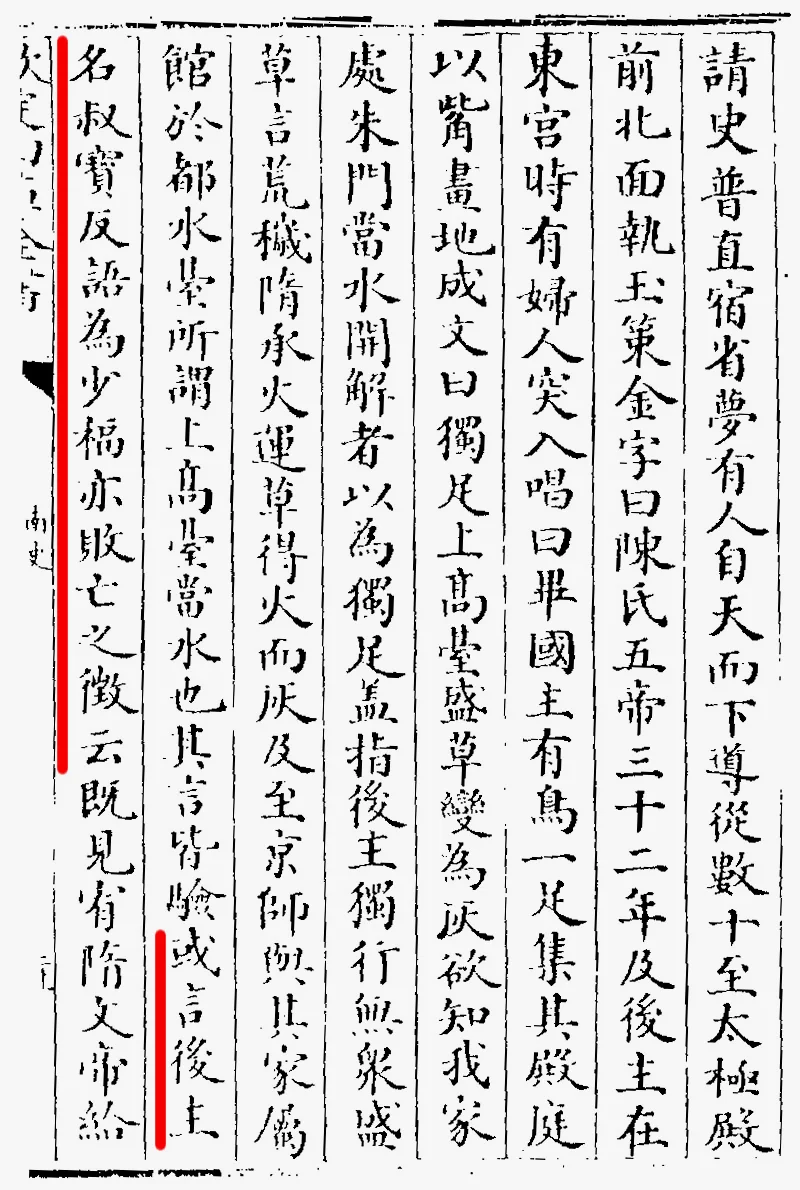 請史普直宿省夢有人自天而下導從數十至太極殿
前北面執玉策金字曰陳氏五帝三十二年及後主在
東宮時有婦人突入唱曰畢國主有鳥一足集其殿庭
以觜畫地成文曰獨足上髙臺盛草變為灰欲知我家
處朱門當水開解者以為獨足盖指後主獨行無衆盛
草言荒穢隋承火運草得火而灰及至京師與其家屬
館於都水臺所謂上髙臺當水也其言皆驗或言後主
名叔寳反語為少福亦敗亡之徴云既見宥隋文帝給
南史